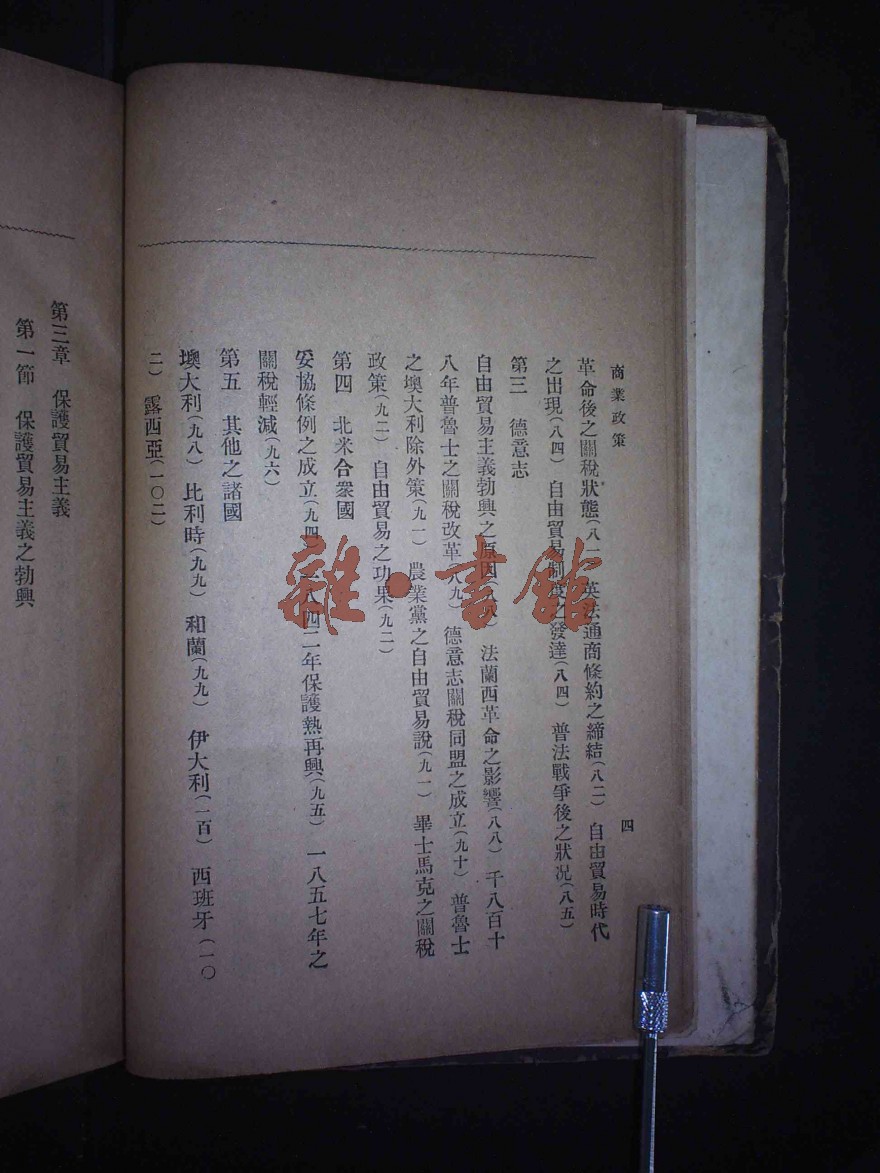 商業政策
四
革命後之關稅狀態(八一) 英法通商條約之締結(八二) 自由貿易時代
之出現(八四) 自由貿易制度之發達(八四) 普法戰爭後之狀况(八五)
第三 德意志
自由貿易主義勃興之原因(八八) 法蘭西革命之影響(八八) 千八百十
八年普魯士之關稅改革(八九) 德意志關稅同盟之成立(九十) 普魯士
之墺大利除外策(九一) 農業黨之自由貿易說(九一) 畢士馬克之關稅
政策(九二) 自由貿易之功果(九二)
第四 北米合衆國
妥協條例之成立(九四) 一八四二年保護熱再興(九五) 一八五七年之
關稅輕減(九六)
第五 其他之諸國
墺大利(九八) 比利時(九九) 和蘭(九九) 伊大利(一百) 西班牙(一〇
二) 露西亞(一〇二)
第三章 保護貿易主義
第一節 保護貿易主義之勃興
雜·書館